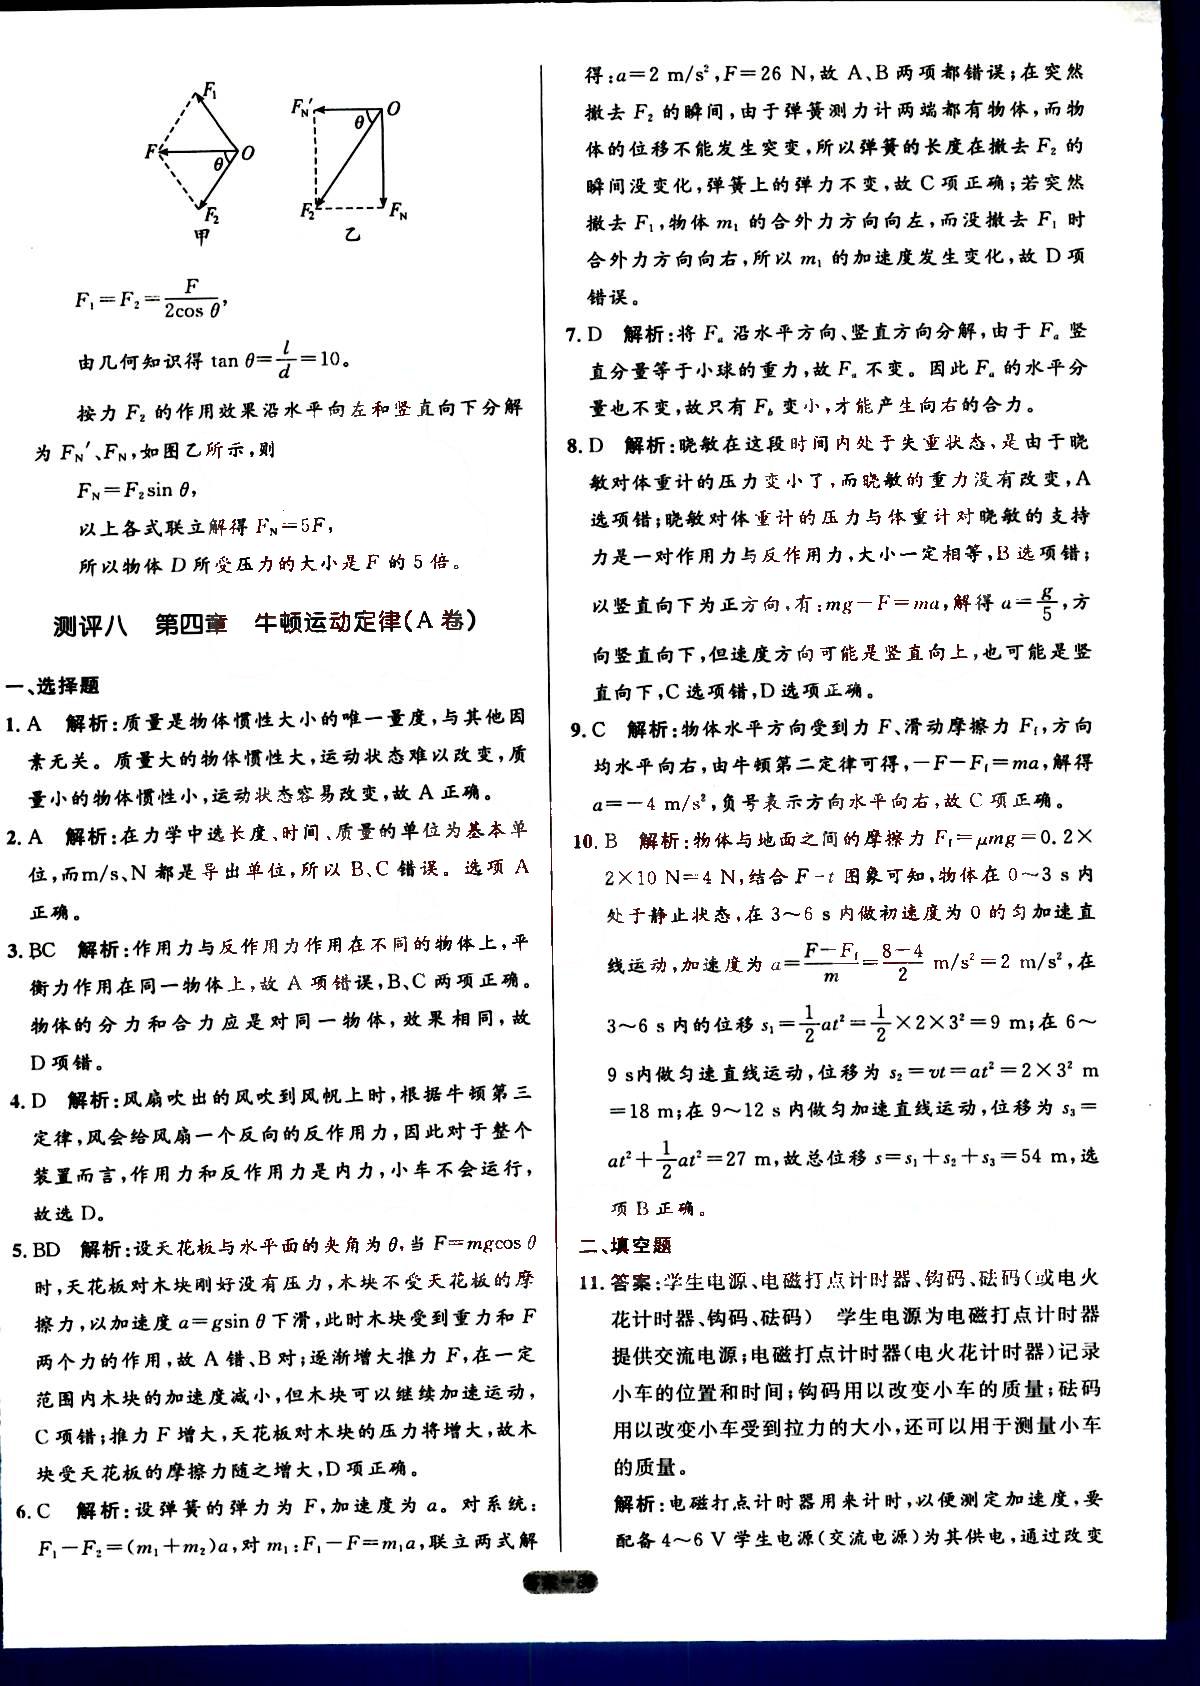 F₁
F
O
θ
F₂
甲
F_N′
O
θ
F₂
F_N
乙
F₁=F₂=F/(2cos θ),
由几何知识得 tan θ=l/d=10。
按力 F₂ 的作用效果沿水平向左和竖直向下分解
为 F_N′、F_N,如图乙所示,则
F_N=F₂sin θ,
以上各式联立解得 F_N=5F,
所以物体 D 所受压力的大小是 F 的 5 倍。
测评八 第四章 牛顿运动定律(A 卷)
一、选择题
1. A 解析:质量是物体惯性大小的唯一量度,与其他因
素无关。质量大的物体惯性大,运动状态难以改变,质
量小的物体惯性小,运动状态容易改变,故 A 正确。
2. A 解析:在力学中选长度、时间、质量的单位为基本单
位,而m/s、N 都是导出单位,所以 B、C 错误。选项 A
正确。
3. BC 解析:作用力与反作用力作用在不同的物体上,平
衡力作用在同一物体上,故 A 项错误,B、C 两项正确。
物体的分力和合力应是对同一物体,效果相同,故
D 项错。
4. D 解析:风扇吹出的风吹到风帆上时,根据牛顿第三
定律,风会给风扇一个反向的反作用力,因此对于整个
装置而言,作用力和反作用力是内力,小车不会运行,
故选 D。
5. BD 解析:设天花板与水平面的夹角为 θ,当 F=mgcos θ
时,天花板对木块刚好没有压力,木块不受天花板的摩
擦力,以加速度 a=gsin θ 下滑,此时木块受到重力和 F
两个力的作用,故 A 错、B 对;逐渐增大推力 F,在一定
范围内木块的加速度减小,但木块可以继续加速运动,
C 项错;推力 F 增大,天花板对木块的压力将增大,故木
块受天花板的摩擦力随之增大,D 项正确。
6. C 解析:设弹簧的弹力为 F,加速度为 a。对系统:
F₁-F₂=(m₁+m₂)a,对 m₁:F₁-F=m₁a,联立两式解
得:a=2 m/s²,F=26 N,故 A、B 两项都错误;在突然
撤去 F₂ 的瞬间,由于弹簧测力计两端都有物体,而物
体的位移不能发生突变,所以弹簧的长度在撤去 F₂ 的
瞬间没变化,弹簧上的弹力不变,故 C 项正确;若突然
撤去 F₁,物体 m₁ 的合外力方向向左,而没撤去 F₁ 时
合外力方向向右,所以 m₁ 的加速度发生变化,故 D 项
错误。
7. D 解析:将 Fₐ 沿水平方向、竖直方向分解,由于 Fₐ 竖
直分量等于小球的重力,故 Fₐ 不变。因此 Fₐ 的水平分
量也不变,故只有 F_b 变小,才能产生向右的合力。
8. D 解析:晓敏在这段时间内处于失重状态,是由于晓
敏对体重计的压力变小了,而晓敏的重力没有改变,A
选项错;晓敏对体重计的压力与体重计对晓敏的支持
力是一对作用力与反作用力,大小一定相等,B 选项错;
以竖直向下为正方向,有:mg-F=ma,解得 a=g/5,方
向竖直向下,但速度方向可能是竖直向上,也可能是竖
直向下,C 选项错,D 选项正确。
9. C 解析:物体水平方向受到力 F、滑动摩擦力 F_f,方向
均水平向右,由牛顿第二定律可得,-F-F_f=ma,解得
a=-4 m/s²,负号表示方向水平向右,故 C 项正确。
10. B 解析:物体与地面之间的摩擦力 F_f=μmg=0.2×
2×10 N=4 N,结合 F-t 图象可知,物体在 0~3 s 内
处于静止状态,在 3~6 s 内做初速度为 0 的匀加速直
线运动,加速度为 a=(F-F_f)/m=(8-4)/2 m/s²=2 m/s²,在
3~6 s 内的位移 s₁=1/2at²=1/2×2×3²=9 m;在 6~
9 s内做匀速直线运动,位移为 s₂=vt=at²=2×3² m
=18 m;在 9~12 s 内做匀加速直线运动,位移为 s₃=
at²+1/2at²=27 m,故总位移 s=s₁+s₂+s₃=54 m,选
项 B 正确。
二、填空题
11. 答案:学生电源、电磁打点计时器、钩码、砝码(或电火
花计时器、钩码、砝码) 学生电源为电磁打点计时器
提供交流电源;电磁打点计时器(电火花计时器)记录
小车的位置和时间;钩码用以改变小车的质量;砝码
用以改变小车受到拉力的大小,还可以用于测量小车
的质量。
解析:电磁打点计时器用来计时,以便测定加速度,要
配备 4~6 V 学生电源(交流电源)为其供电,通过改变